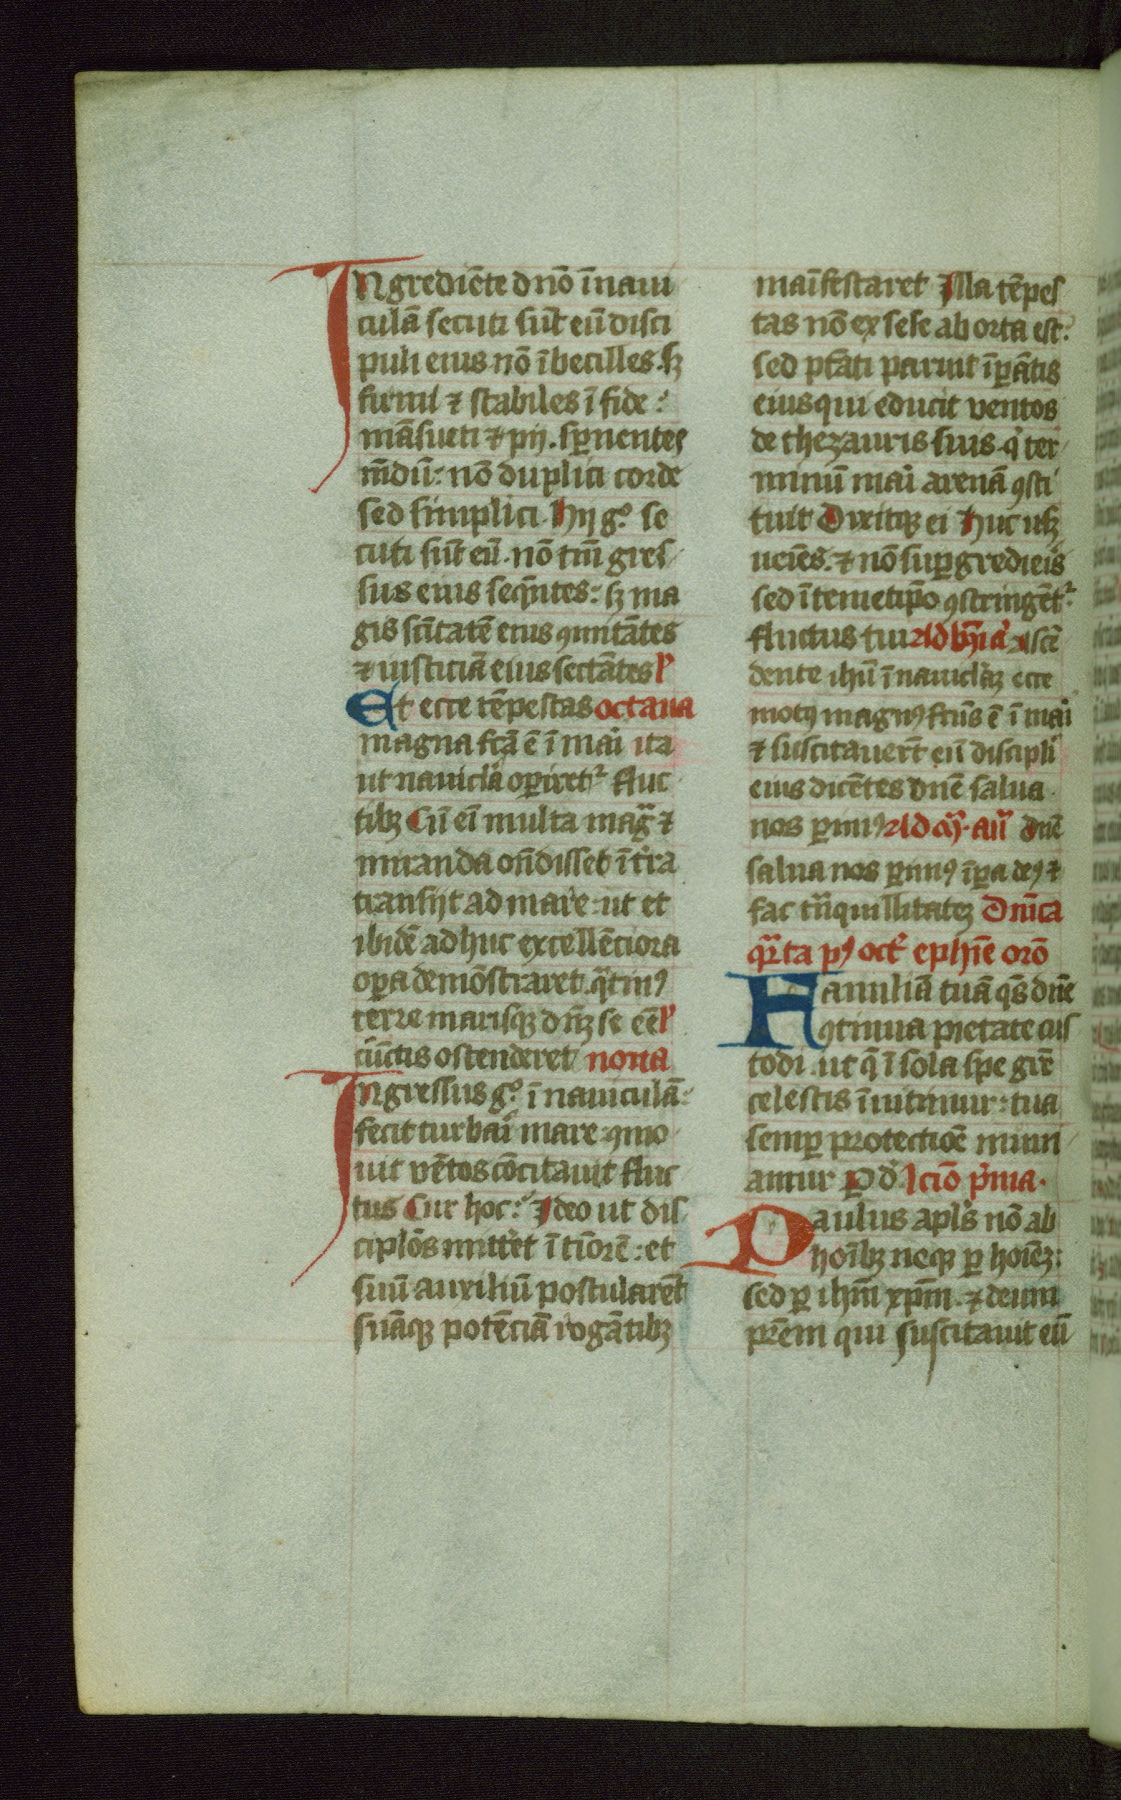 Ingrediēte dnō ī naui
culā secuti sūt eū disci
puli eius nō ībecilles. sꝫ
firmi ⁊ stabiles ī fide:
māsueti ⁊ pij. sꝑnentes
mūdū: nō duplici corde
sed simplici. Hij gͦ se
cuti sūt eū. nō tm̄ gres
sus eius seq̄ntes: sꝫ ma
gis scītatē eius ꝯmitātes
⁊ iusticiā eius sectātes P̄
Et ecce tēpestas octaua
magna fcā ē ī mari ita
ut nauicla oꝑiretr fluc
tibꝫ Cū eī multa mag̃ ⁊
miranda oñdisset ī tr̄ra
transijt ad mare: ut et
ibidē adhuc excellēciora
oꝑa demōstraret. q̄tinꝰ
terre marisqꝫ dn̄ꝫ se eē P̄
cūctis ostenderet nona
Ingressus gͦ ī nauiculā:
fecit turbari mare: ꝯmo
uit vētos cōcitauit fluc
tus Cur hoc: Ideo ut dis
ciplōs mitt̄et ī tiorē: et
suū auxiliū postularēt
suāqꝫ potēciā rogātibꝫ
maīfestaret Illa tēpes
tas nō ex sese ab orta est:
sed ptāti paruit īꝑātis
eius qui educit ventos
de thezauris suis. q' ter
minū mari arenā ꝯsti
tuit Dixitqꝫ ei Huc usꝫ
ueīes. ⁊ nō suꝑgredieīs
sed ī temetipo ꝯstringēt2
fluctus tui Ad bn̄ a' Ascē
dente ihū ī nauiclāꝫ ecce
motꝰ magnꝰ fcūs ē ī mari
⁊ suscitauerūt eū discipli
eius dicētes dn̄e salua
nos ꝑimꝰ Ad mā. an̄ dn̄e
salua nos ꝑimꝰ īꝑa deꝰ ⁊
fac trāquillitateꝫ Dnīca
qr̄ta pꝰ oct' ephīe orō
Familiā tuā qs̄ dn̄e
ꝯtinua pietate cus
todi. ut q̄ ī sola spe grē
celestis īnititur: tua
semꝑ protectiōe muni
atur P d' lcīo p̄ma.
Paulus apls̄ nō ab
hoībꝫ neqꝫ ꝑ hoīeꝫ:
sed ꝑ ihm̄ xpm̄. ⁊ deum
prēm qui suscitauit eū